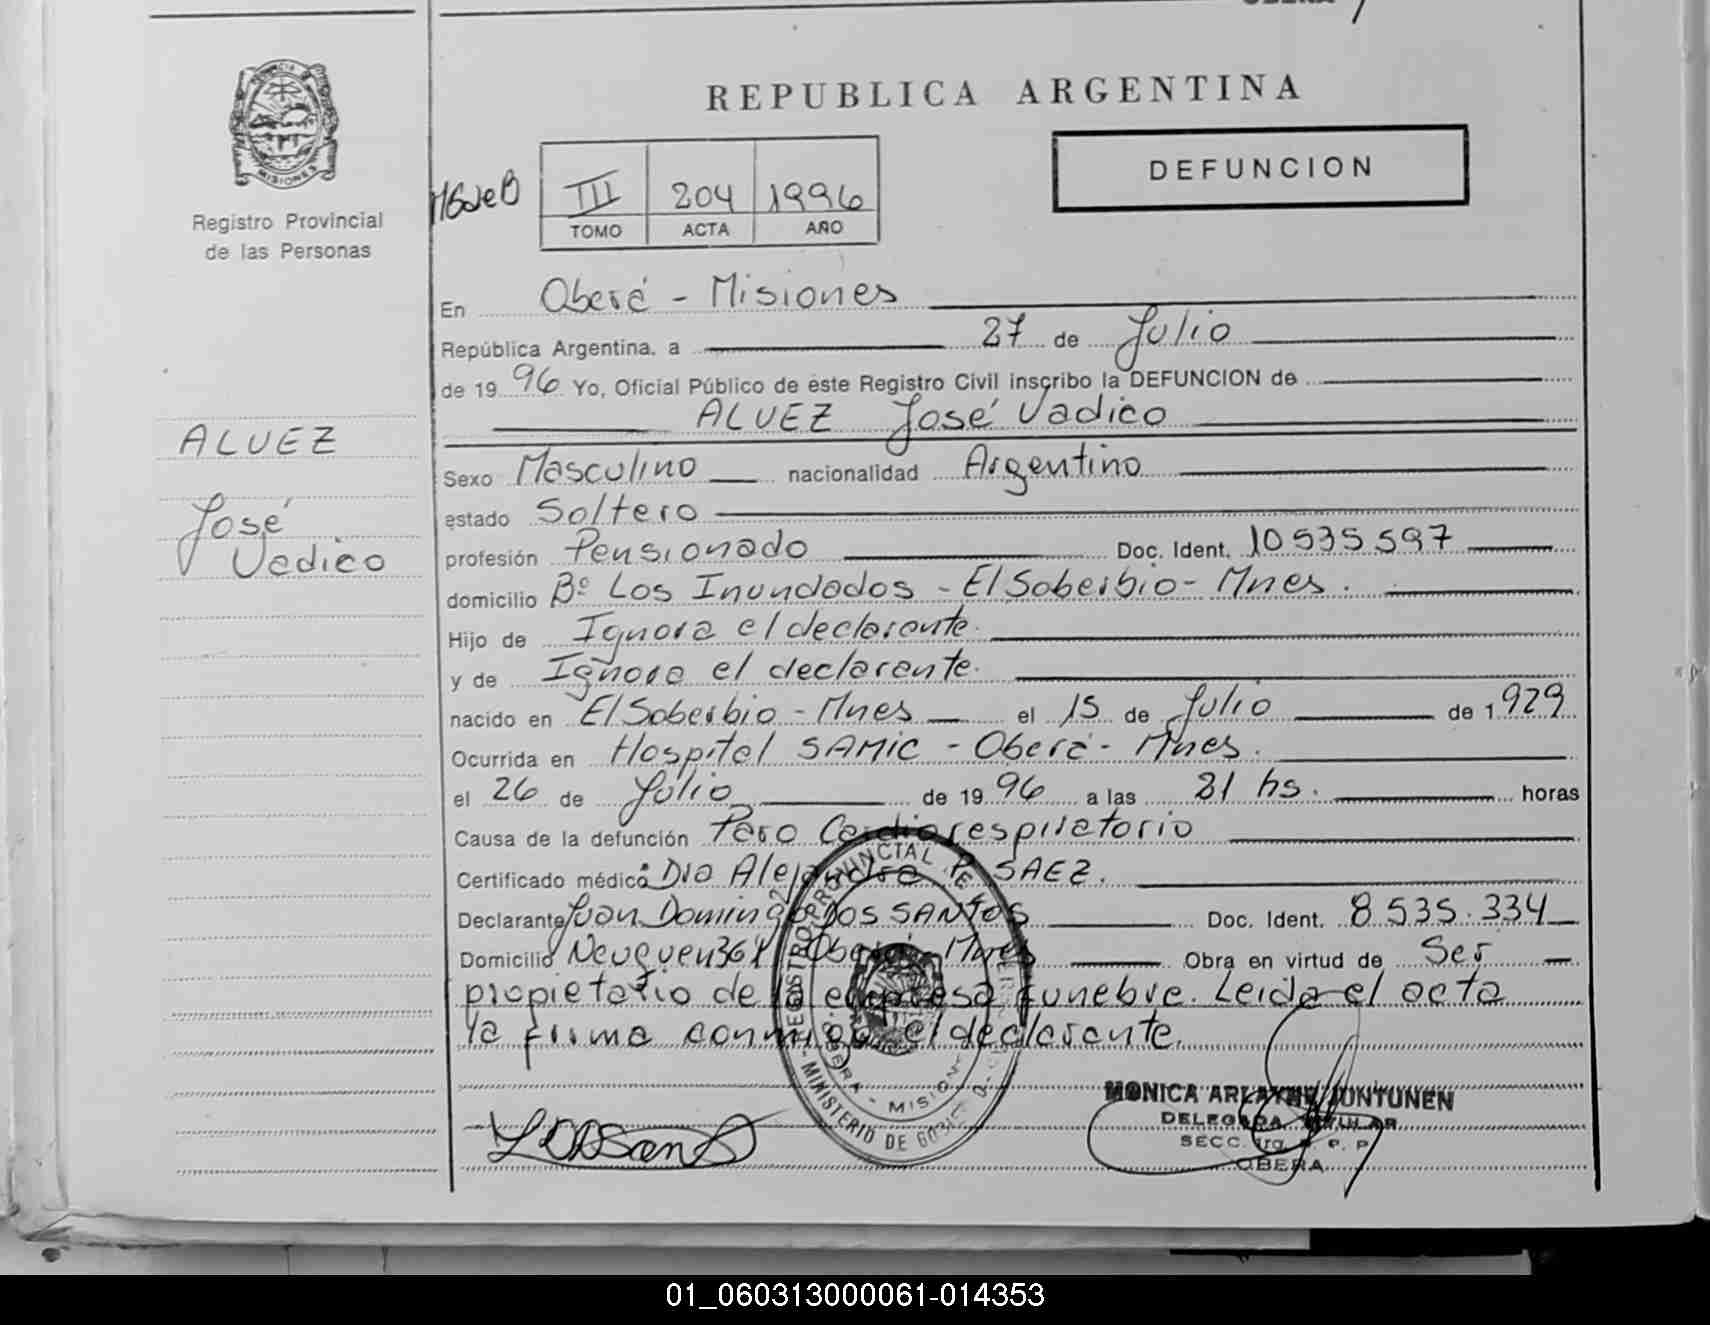 REPUBLICA ARGENTINA
DEFUNCION
III 204 1996
TOMO ACTA AÑO
MISIONES
Registro Provincial
de las Personas
En Oberá - Misiones
República Argentina, a 27 de Julio
de 1996 Yo, Oficial Público de este Registro Civil inscribo la DEFUNCION de
ALVEZ José Vadico
ALVEZ
José
Vadico
Sexo Masculino nacionalidad Argentino
estado Soltero
profesión Pensionado Doc. Ident. 10535597
domicilio Bº Los Inundados - El Soberbio - Mnes.
Hijo de Ignora el declarante.
y de Ignora el declarante.
nacido en El Soberbio - Mnes el 15 de Julio de 1929
Ocurrida en Hospital SAMIC - Oberá - Mnes.
el 26 de Julio de 1996 a las 21 hs. horas
Causa de la defunción Paro Cardiorespiratorio
Certificado médico: Dra Alejandra P. SAEZ.
Declarante Juan Domingo DOS SANTOS Doc. Ident. 8.535.334
Domicilio Neuquen 364 Oberá - Mnes Obra en virtud de Ser
propietario de la empresa funebre. Leida el acta
la firma conmigo el declarante.
MONICA ARLAYNE JUNTUNEN
DELEGADA TITULAR
SECC. 1ra. R. P. P.
OBERA
01_060313000061-014353